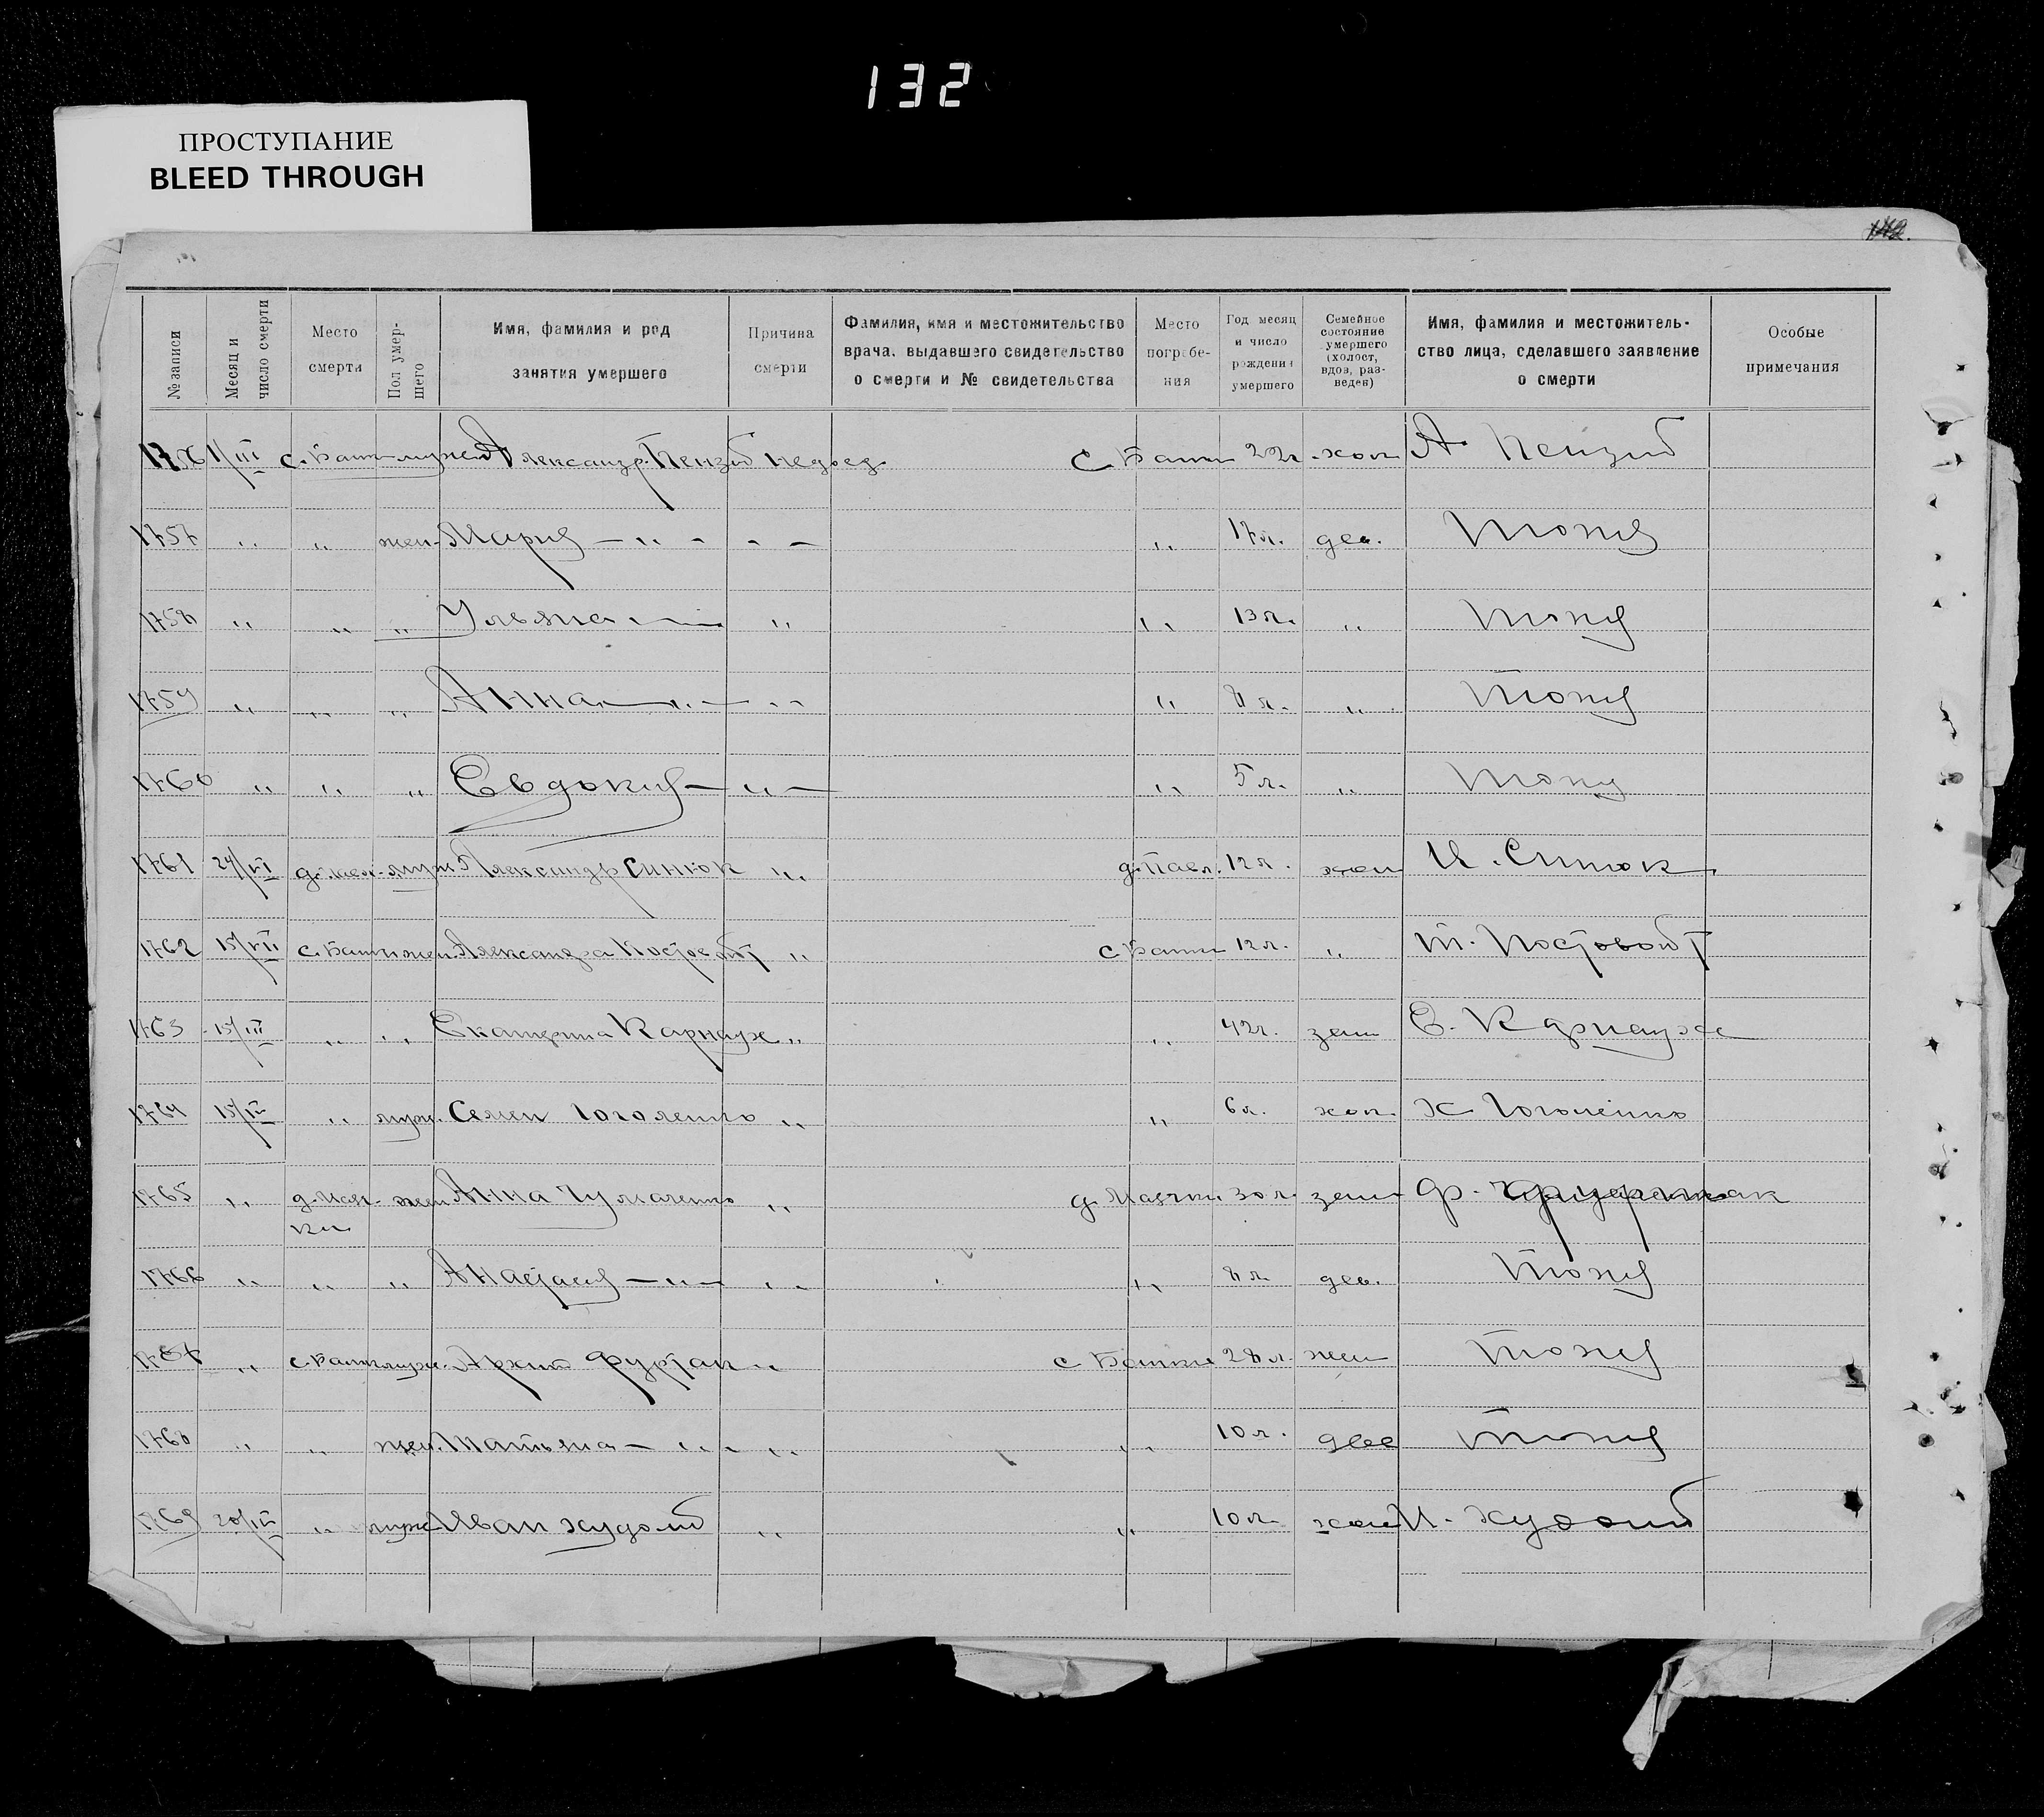 132
ПРОСТУПАНИЕ
BLEED THROUGH
142.
№ записи
Месяц и число смерти
Место смерти
Пол умер-шего
Имя, фамилия и род занятия умершего
Причина смерти
Фамилия, имя и местожительство врача, выдавшего свидетельство о смерти и № свидетельства
Место погребе-ния
Год месяц и число рождения умершего
Семейное состояние умершего (холост, вдов, раз-веден)
Имя, фамилия и местожитель-ство лица, сделавшего заявление о смерти
Особые примечания
1/III с. Башт муж Александр недоед с Башт 22г хол А
1757 " " жен Мария — " — " — " 17л. дев. Тоже
1758 " " " Ульяна — " — " " 13л. " Тоже
1759 " " " Анна — " — " " 8л. " Тоже
1760 " " " Евдокия — " — " 5л. " Тоже
1761 24/VI муж Александр Синюк " д. Павл. 12л. хол И. Синюк
1762 с. Башт жен. Александра " с Башт 12л. " Т.
1763 15/III " " Екатерина Карнаух " " 42г. зам Е. Карнаух
1764 " муж. Семен Гоголенко " " 6л. хол. Х Гоголенко
1765 " д. Маяч-ки жен Анна Чумаченко " д. Маячки 30л. зам Ф.
1766 " " " Анастасия — " — " " 8л. дев. Тоже
1767 " с. Башт муж. Архип Фуртак " с Башт 28л. жен Тоже
1768 " " жен. Татьяна — " — " " 10л. дев Тоже
1769 " муж Иван Худолий " " 10л. хол И. Худолий